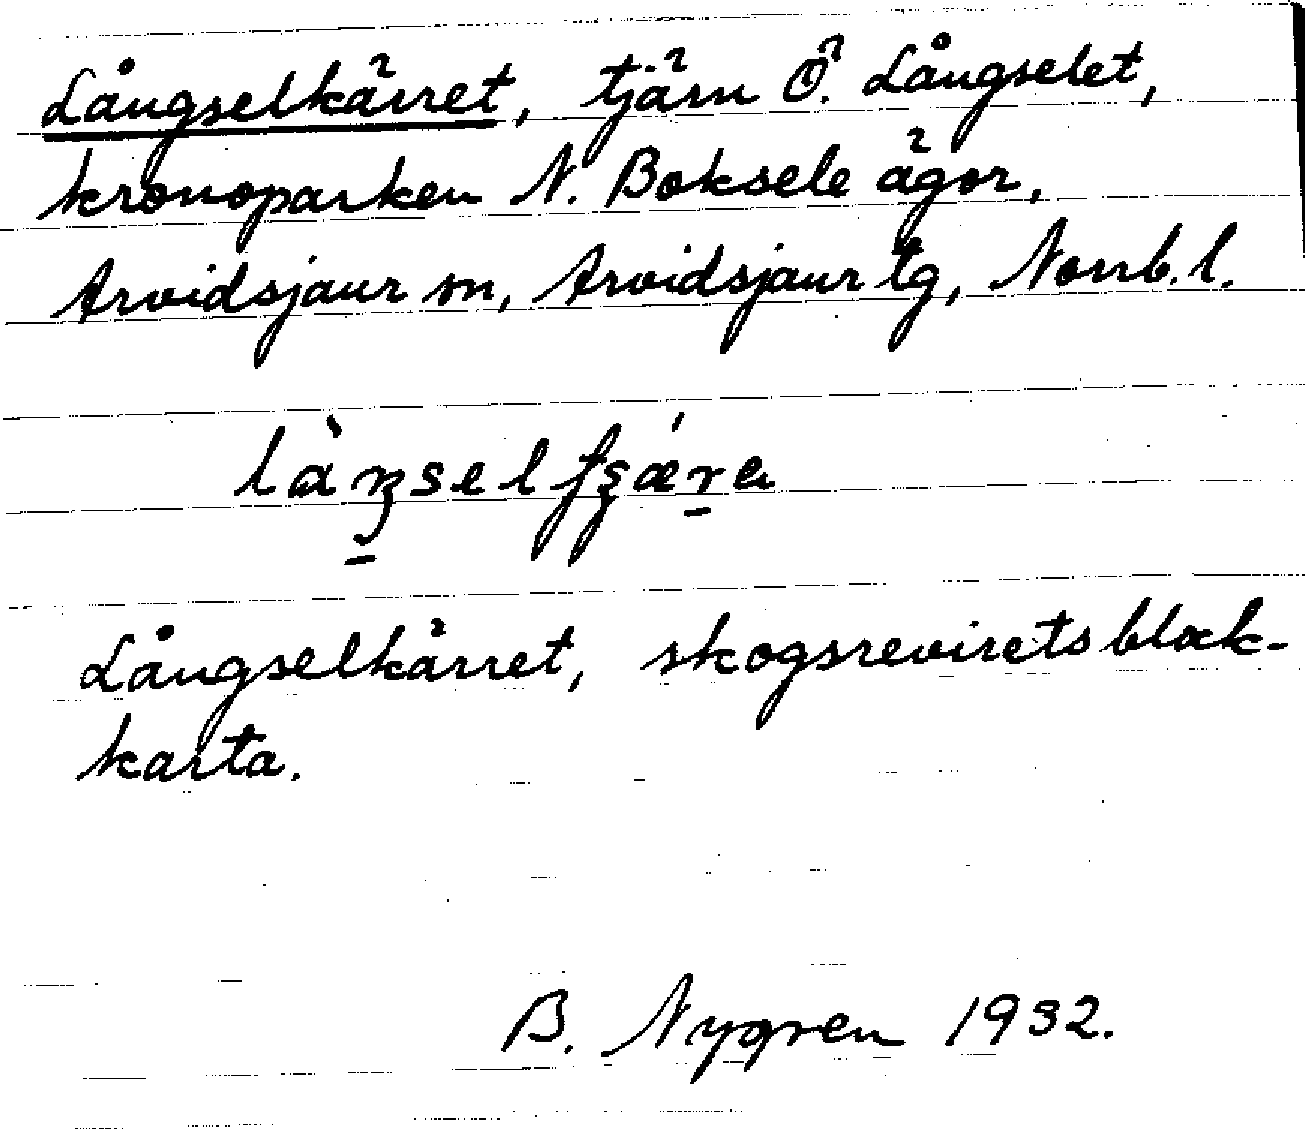 Långselkärret, tjärn Ö. Långselet,
kronoparken N. Boksele ägor,
Arvidsjaur sn, Arvidsjaur tg, Norrb. l.
Långselkärret, skogsrevirets blok-
karta.
B. Nygren 1932.